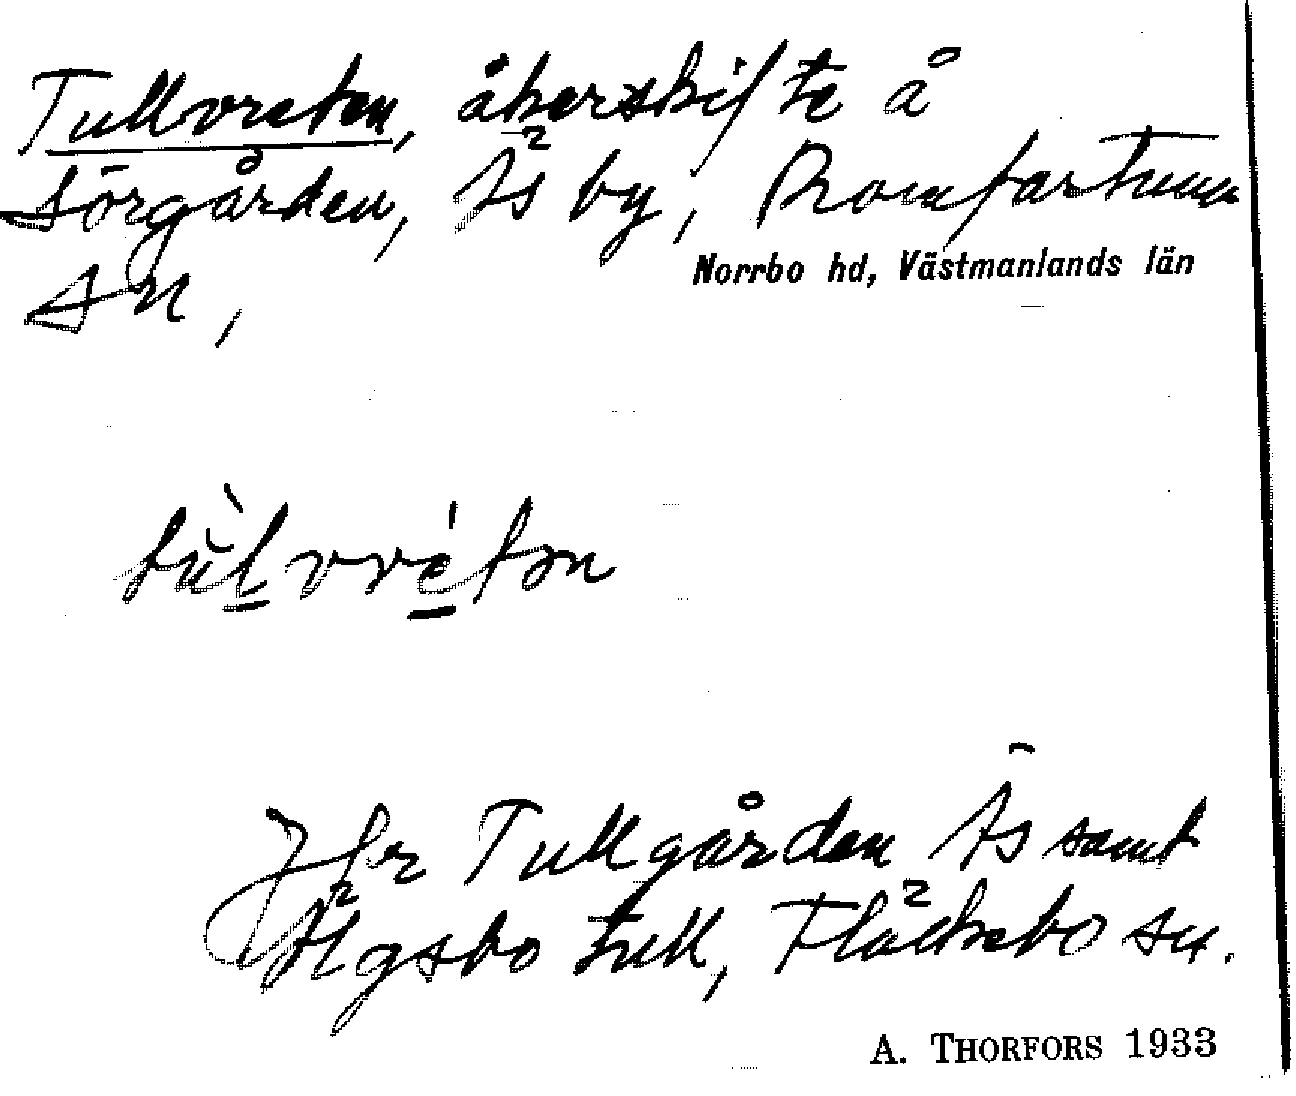 Tullvreten, åkerskifte å
Sörgården, Äs by, Romfartuna
sn,
Norrbo hd, Västmanlands län
Jfr Tullgården Äs samt
Älgsbo tull, Fläckebo sn.
A. THORFORS 1933